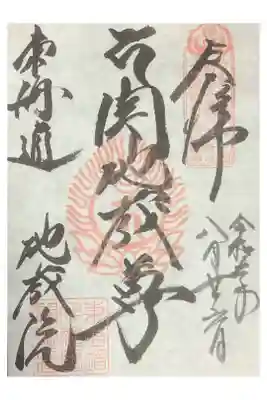 奉拝
令和
八月廿六日
関地蔵尊
東海道
地蔵院